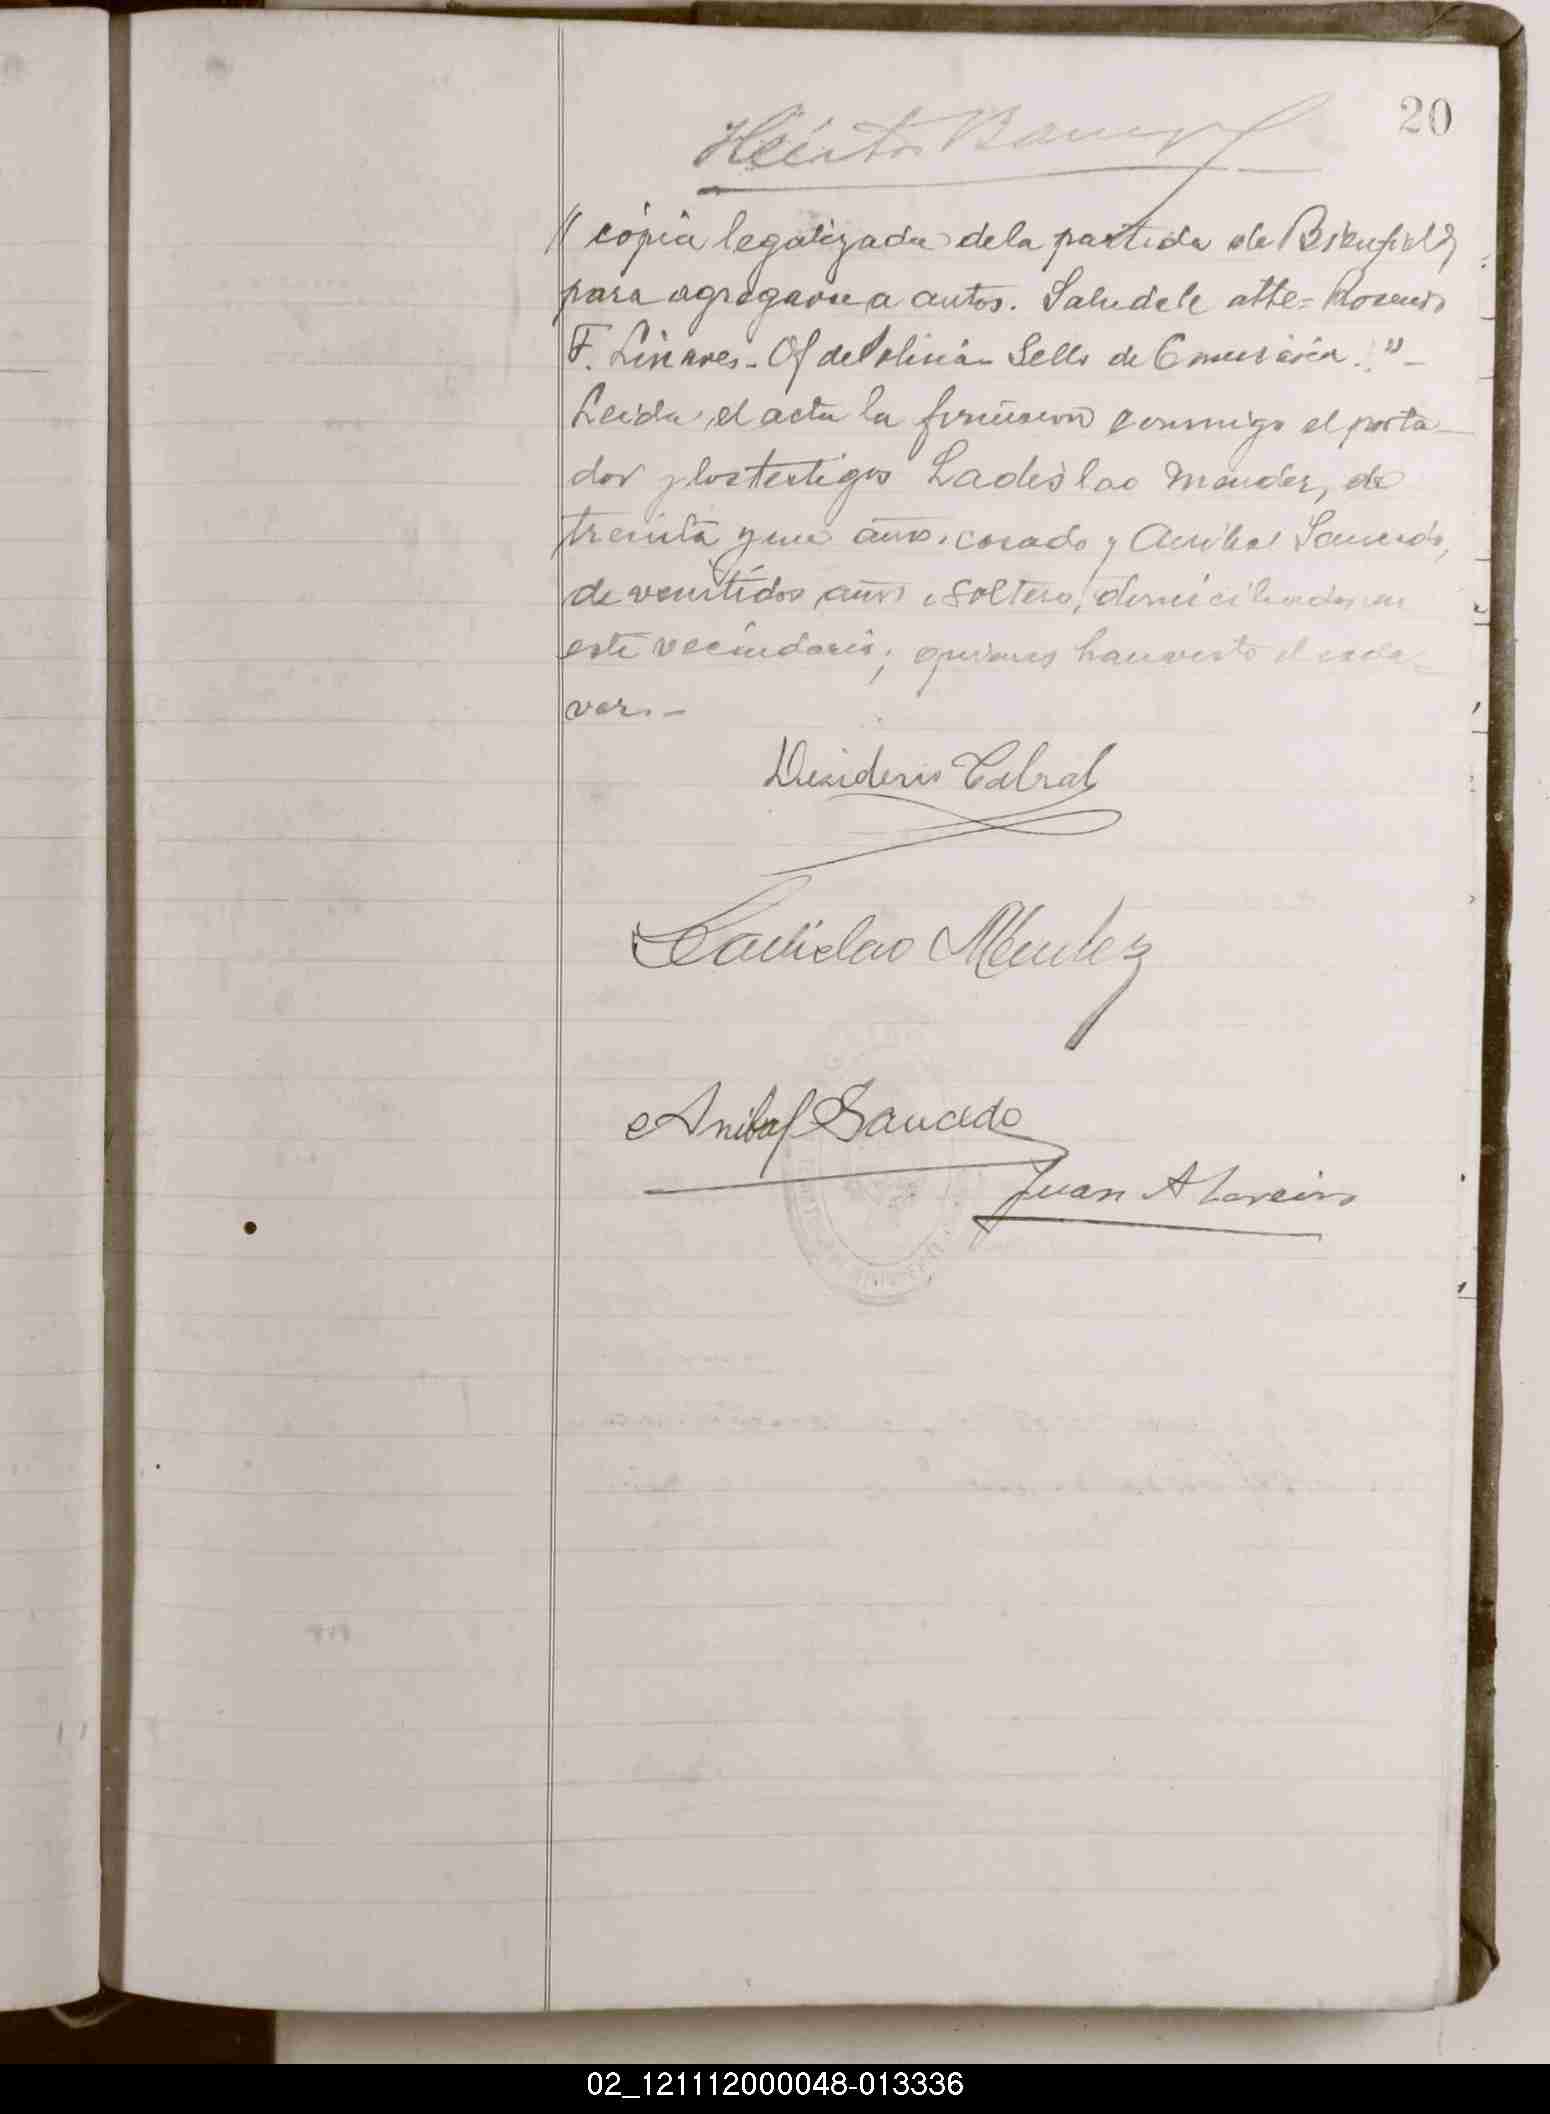 20
Héctor
" copia legalizada de la partida de
para agregarse a autos. Saludale atte= Rosendo
F. Linares - Of de Policía - Sello de Comisaría."-
Leida el acta la firmaron conmigo el porta-
dor y los testigos Ladislao Mendez, de
treinta y un años, casado y Anibal Saucedo,
de veintidos años, soltero, domiciliados en
este vecindario; quienes han visto el cada-
ver.-
Desiderio Cabral
Ladislao Mendez
Anibal Saucedo
Juan A
02_121112000048-013336